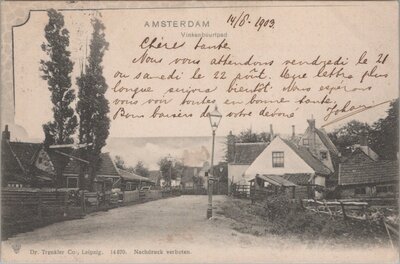 AMSTERDAM
Vinkenbuurtpad
14/8 - 1903.
Chères tante
Nous vous attendons vendredi le 21
ou samedi le 22 août. Une lettre plus
longue suivra bientôt. Nous esperons
vous voir toutes en bonne sante.
Bons baisers de votre devoué Johan
Dr. Trenkler Co., Leipzig. 14 670. Nachdruck verboten.